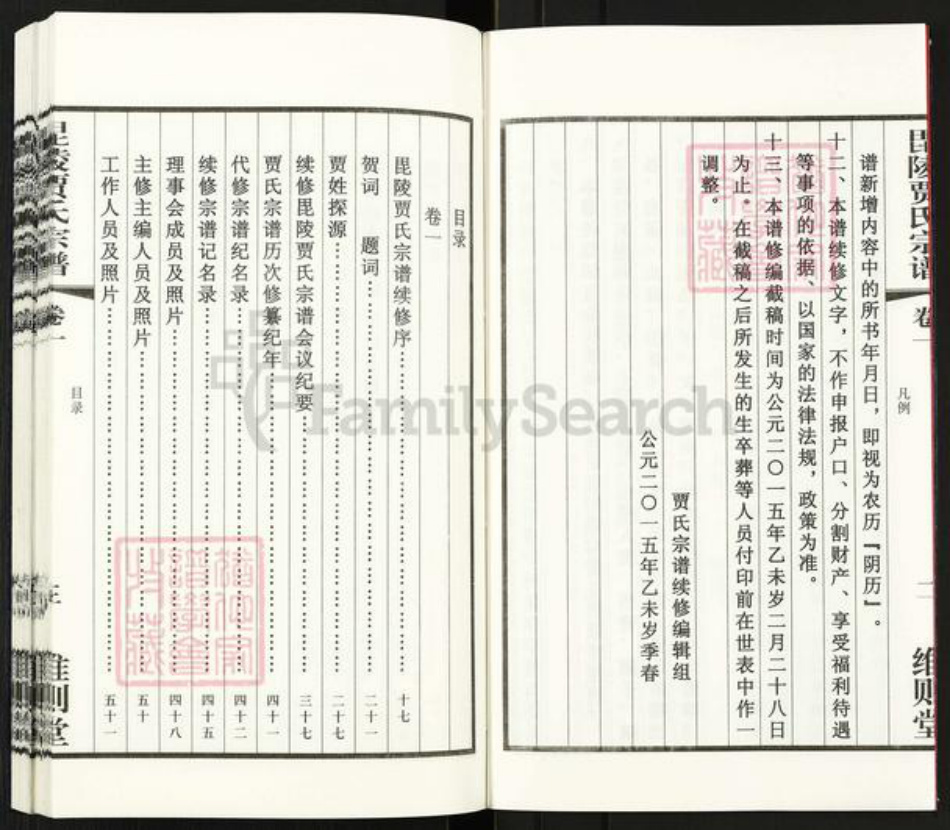 毘陵贾氏宗谱
卷
凡例
二
维则堂
谱新增内容中的所书年月日，即视为农历『阴历』。
十二、本谱续修文字，不作申报户口、分割财产、享受福利待遇
等事项的依据、以国家的法律法规，政策为准。
十三、本谱修编截稿时间为公元二〇一五年乙未岁二月二十八日
为止。在截稿之后所发生的生卒葬等人员付印前在世表中作一
调整。
贾氏宗谱续修编辑组
公元二〇一五年乙未岁季春
目录
卷一
毘陵贾氏宗谱续修序……十七
贺词 题词……二十一
贾姓探源……二十七
续修毘陵贾氏宗谱会议纪要……三十七
贾氏宗谱历次修纂纪年……四十一
代修宗谱纪名录……四十二
续修宗谱记名录……四十五
理事会成员及照片……四十八
主修主编人员及照片……五十
工作人员及照片……五十一
毘陵贾氏宗谱
卷一
目录
维则堂
FamilySearch